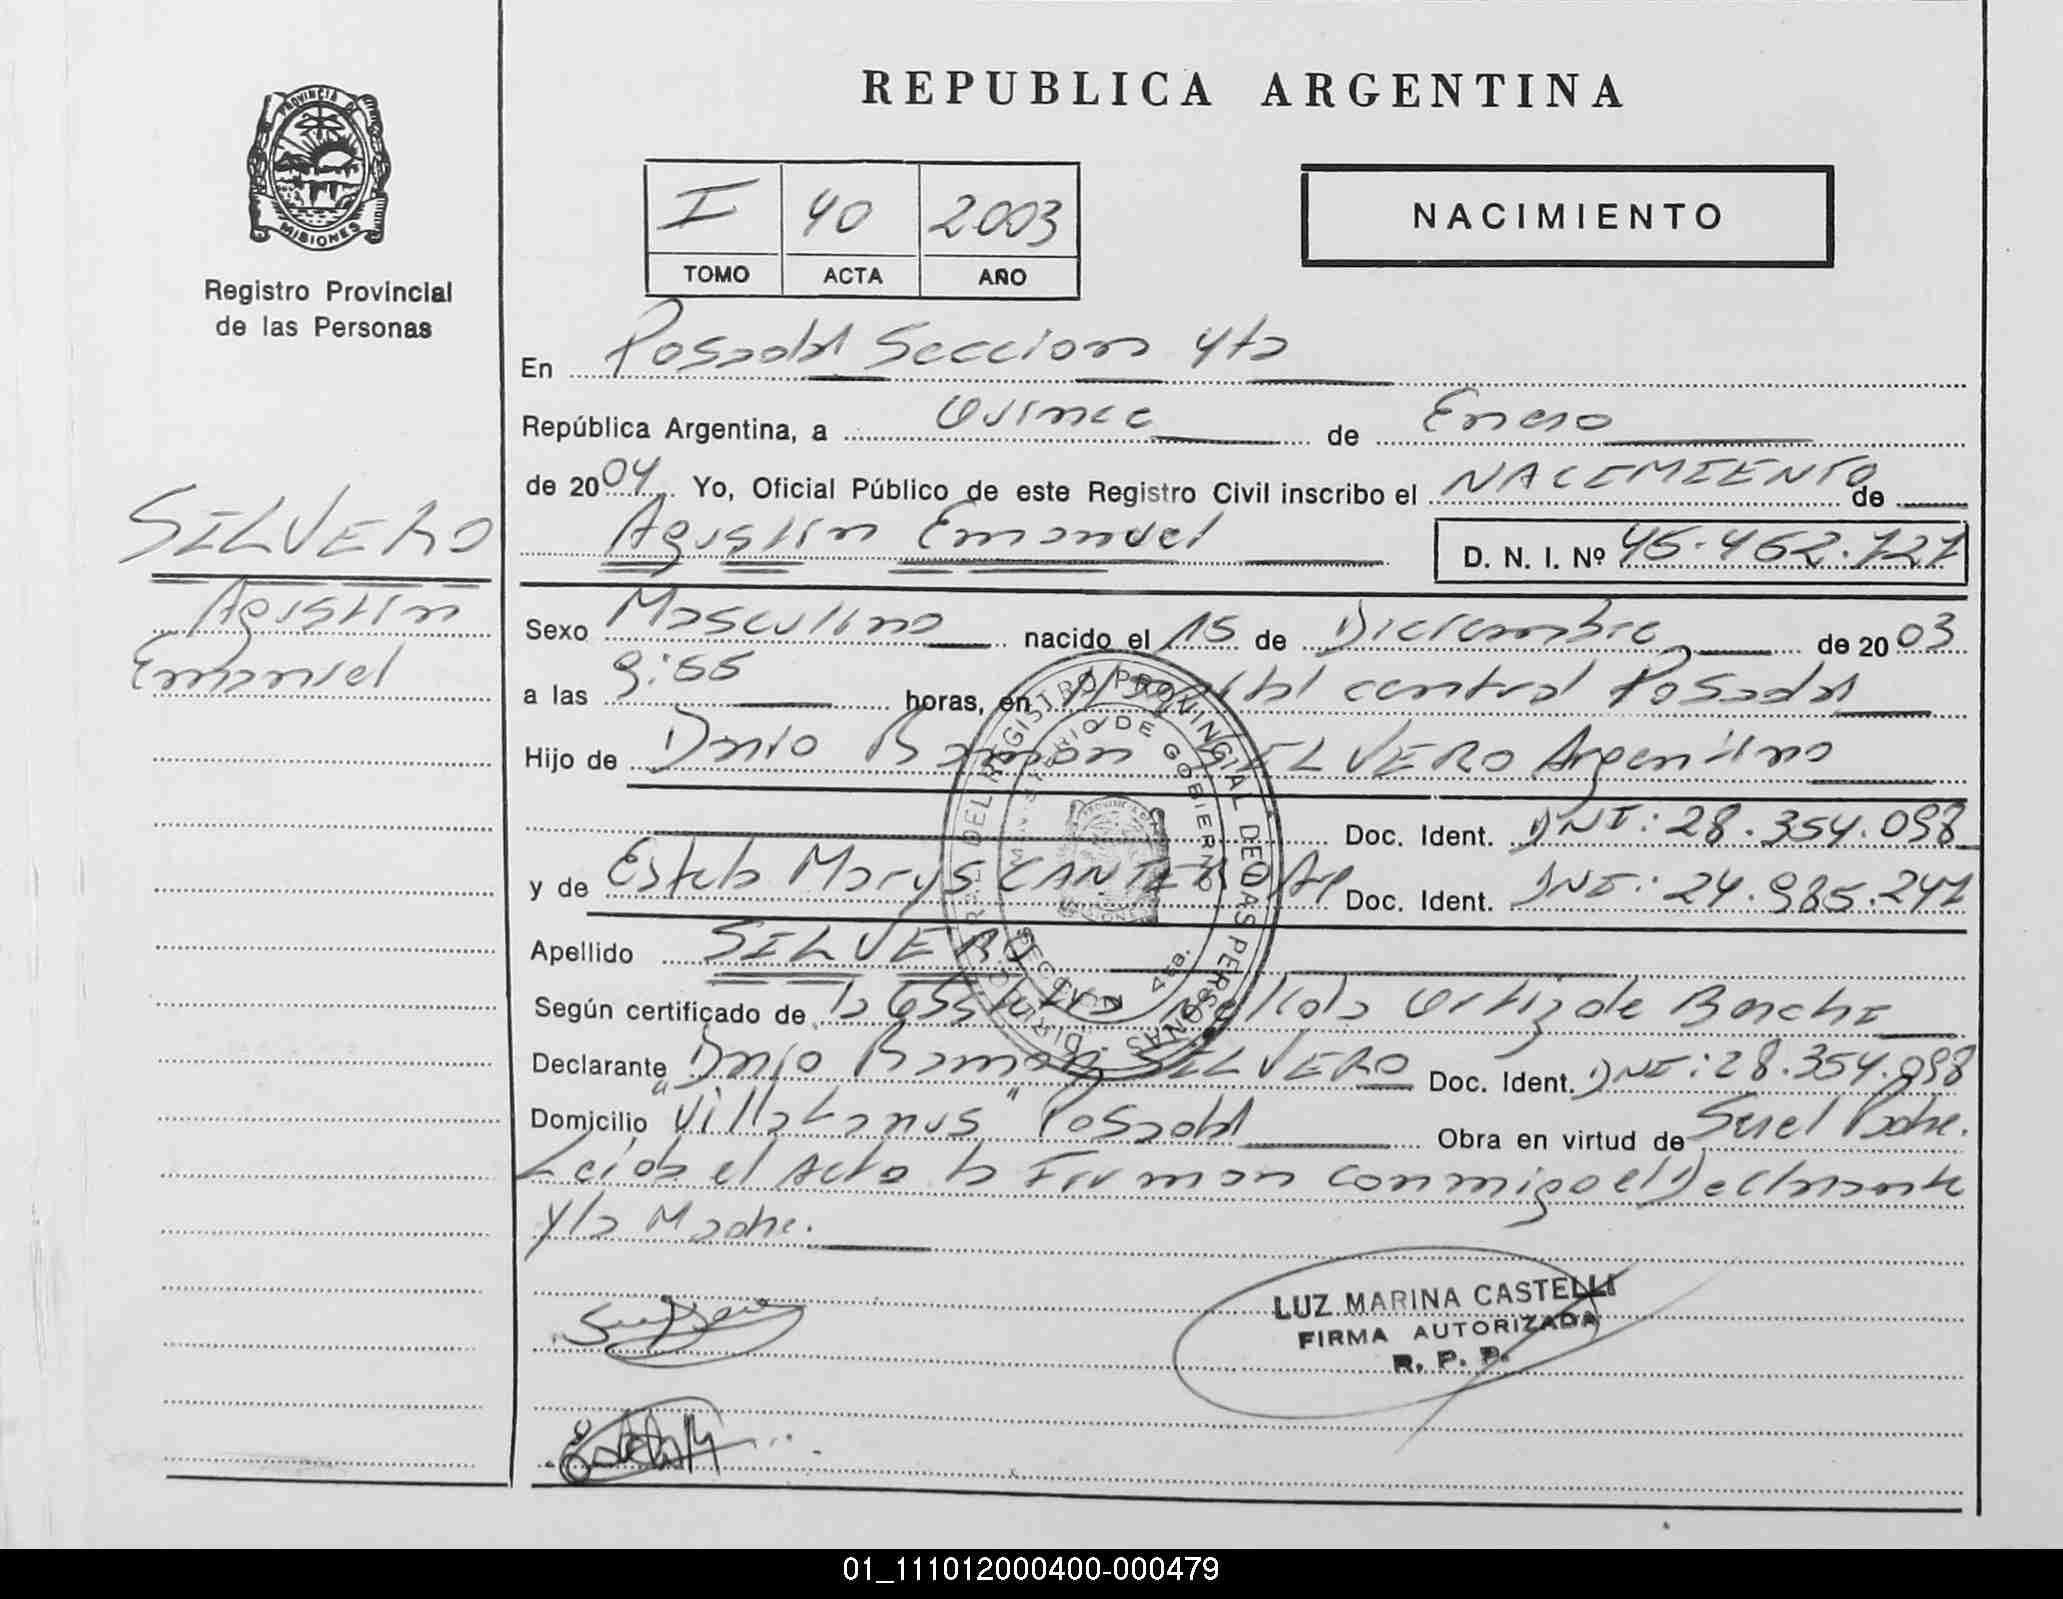 PROVINCIA DE
MISIONES
Registro Provincial
de las Personas
SILVERO
Agustin
Emanuel
REPUBLICA ARGENTINA
I 40 2003
TOMO ACTA AÑO
NACIMIENTO
En Posadas Seccion 4ta
República Argentina, a Quince de Enero
de 2004 Yo, Oficial Público de este Registro Civil inscribo el NACIMIENTO de
Agustin Emanuel D. N. I. Nº 45.462.727
Sexo Masculino nacido el 15 de Diciembre de 2003
a las 9:55 horas, en Hospital central Posadas
Hijo de Dario Ramon SILVERO Argentino
Doc. Ident. DNI: 28.354.098
y de Estela Marys CANTERO Ar Doc. Ident. DNI: 24.985.247
Apellido SILVERO
Según certificado de la Ortiz de
Declarante Dario Ramon SILVERO Doc. Ident. DNI: 28.354.098
Domicilio "Villa Lanus" Posadas Obra en virtud de Ser el Padre.
Leida el Acta la Firman conmigo el Declarante
y la Madre.
DIREC. GRAL. DEL REGISTRO PROVINCIAL DE LAS PERSONAS
MINISTERIO DE GOBIERNO
SECCION 4ta.
LUZ MARINA CASTELLI
FIRMA AUTORIZADA
R. P. P.
01_111012000400-000479